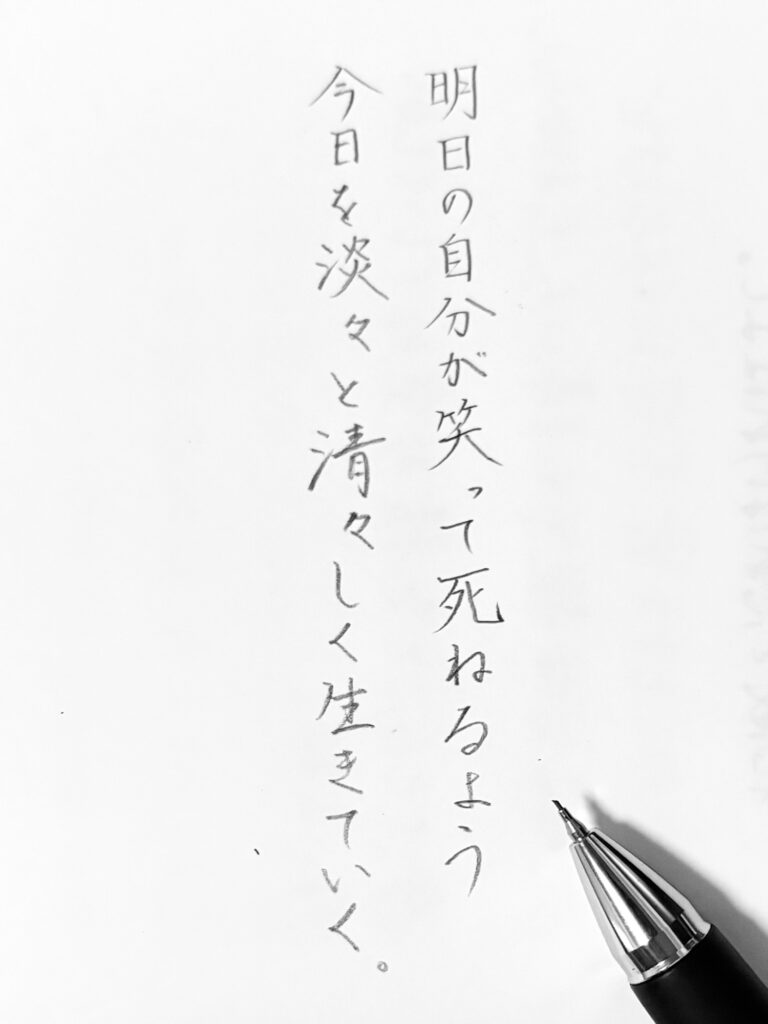 明日の自分が笑って死ねるよう
今日を淡々と清々しく生きていく。